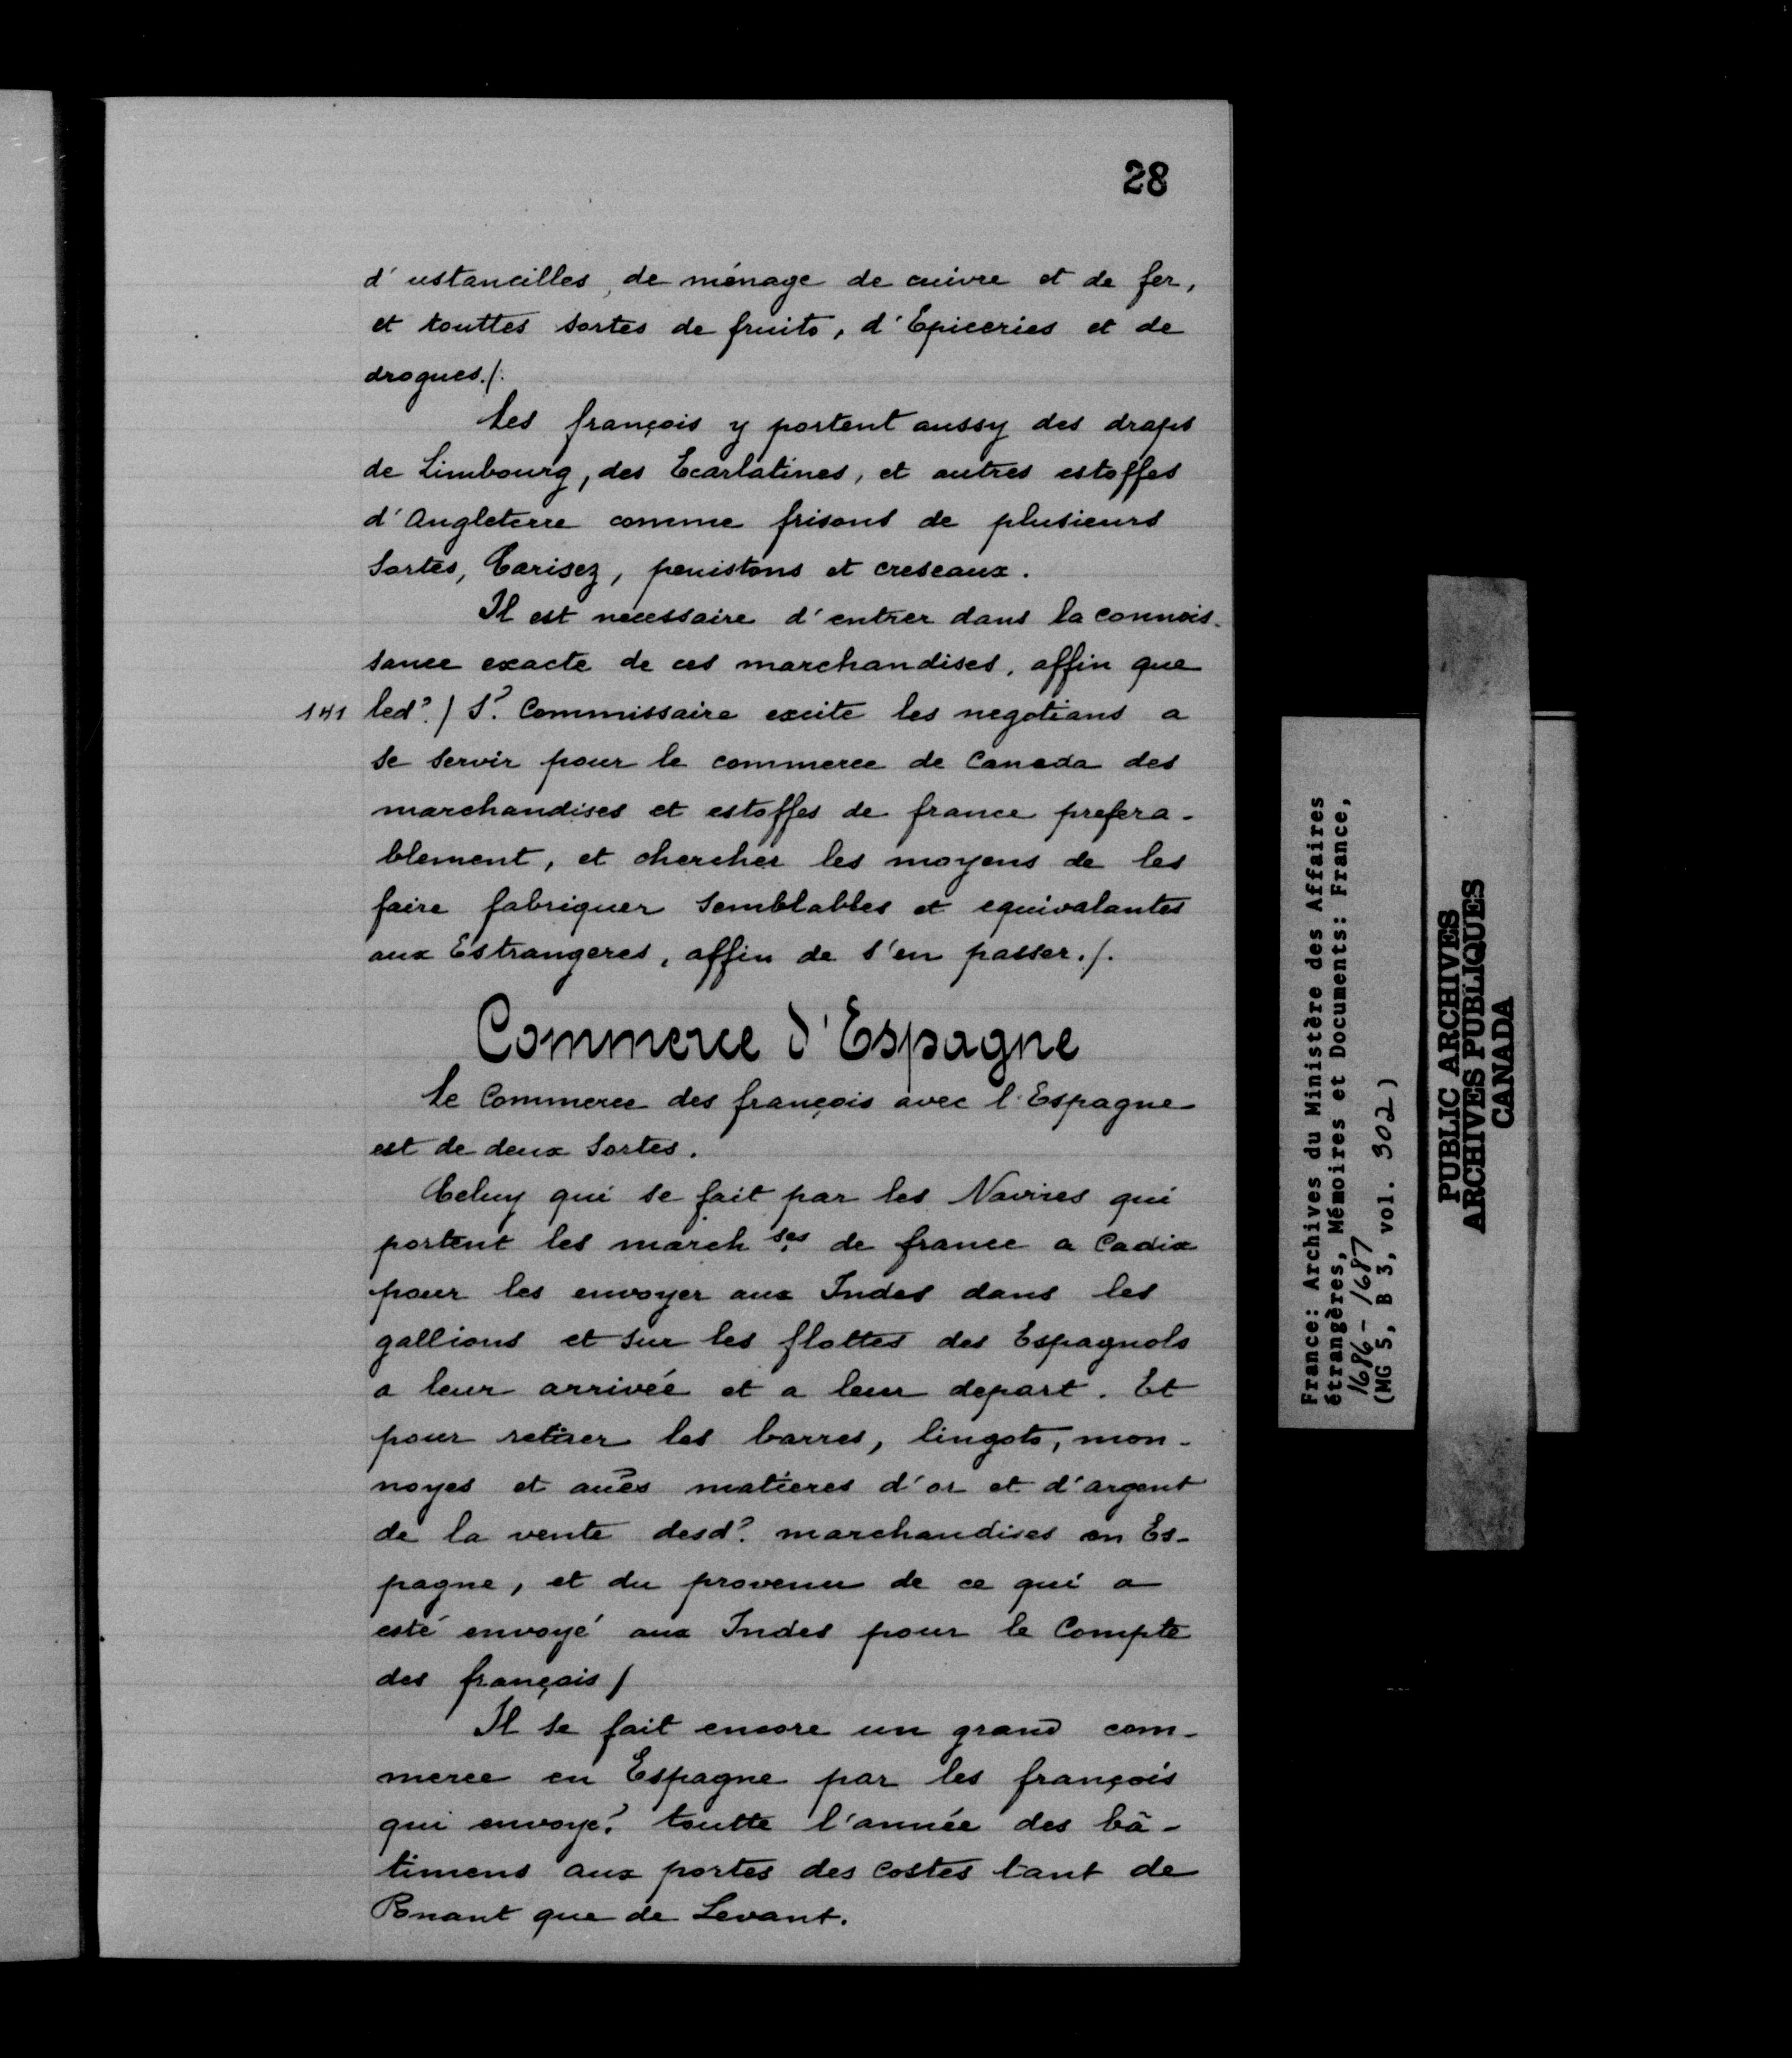 28
d'ustancilles, de ménage de cuivre et de fer,
et touttes sortes de fruits, d'Epiceries et de
drogues./.
Les françois y portent aussy des draps
de Limbourg, des Ecarlatines, et autres estoffes
d'Angleterre comme frisons de plusieurs
Sortes, Carisez, penistons et creseaux.
Il est necessaire d'entrer dans la connois-
sance exacte de ces marchandises, affin que
141 led?/ S? Commissaire excite les negotians a
se servir pour le commerce de Canada des
marchandises et estoffes de france prefera-
blement, et chercher les moyens de les
faire fabriquer semblables et equivalantes
aux Estrangeres, affin de s'en passer./.
Commerce d'Espagne
Le Commerce des françois avec l'Espagne
est de deux Sortes.
Celuy qui se fait par les Navires qui
portent les march ses de france a Cadix
pour les envoyer aux Indes dans les
gallions et sur les flottes des Espagnols
a leur arrivée et a leur depart. Et
pour retirer les barres, lingots, mon-
noyes et aũes matieres d'or et d'argent
de la vente desd? marchandises en Es-
pagne, et du provenu de ce qui a
esté envoyé aux Indes pour le Compte
des français/
Il se fait encore un grand com-
merce en Espagne par les françois
qui envoye? toutte l'année des bâ-
timens aux portes des costes tant de
Ponant que de Levant.
France: Archives du Ministère des Affaires
étrangères, Mémoires et Documents: France,
1686-1687
(MG 5, B 3, vol. 302)
PUBLIC ARCHIVES
ARCHIVES PUBLIQUES
CANADA